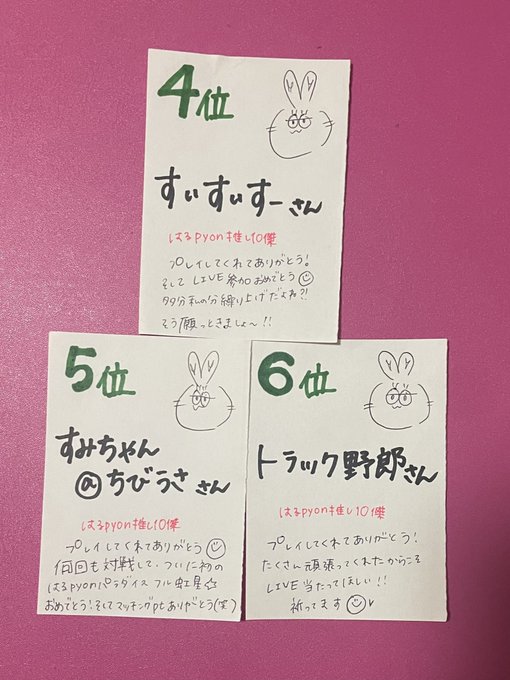 4位
すぃすぃすーさん
はるpyon推し10傑
プレイしてくれてありがとう!
そして LIVE参加おめでとう
多分私の分繰り上げだよね?!
そう願っときましょ〜!!
5位
すみちゃん
@ちびうささん
はるpyon推し10傑
プレイしてくれてありがとう
何回も対戦して、ついに初の
はるpyonパラダイス フル虹星☆
おめでとう!そしてマッチングptありがとう(笑)
6位
トラック野郎さん
はるpyon推し10傑
プレイしてくれてありがとう!
たくさん頑張ってくれたからこそ
LIVE当たってほしい!!
祈ってます